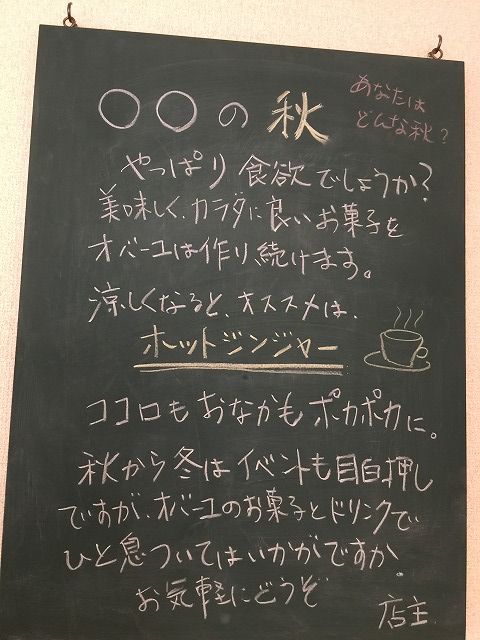 ○○の秋
あなたは
どんな秋?
やっぱり食欲でしょうか?
美味しく、カラダに良いお菓子を
オバーユは作り続けます。
涼しくなると、オススメは、
ホットジンジャー
ココロもおなかもポカポカに。
秋から冬はイベントも目白押し
ですが、オバーユのお菓子とドリンクで
ひと息ついてはいかがですか。
お気軽にどうぞ
店主